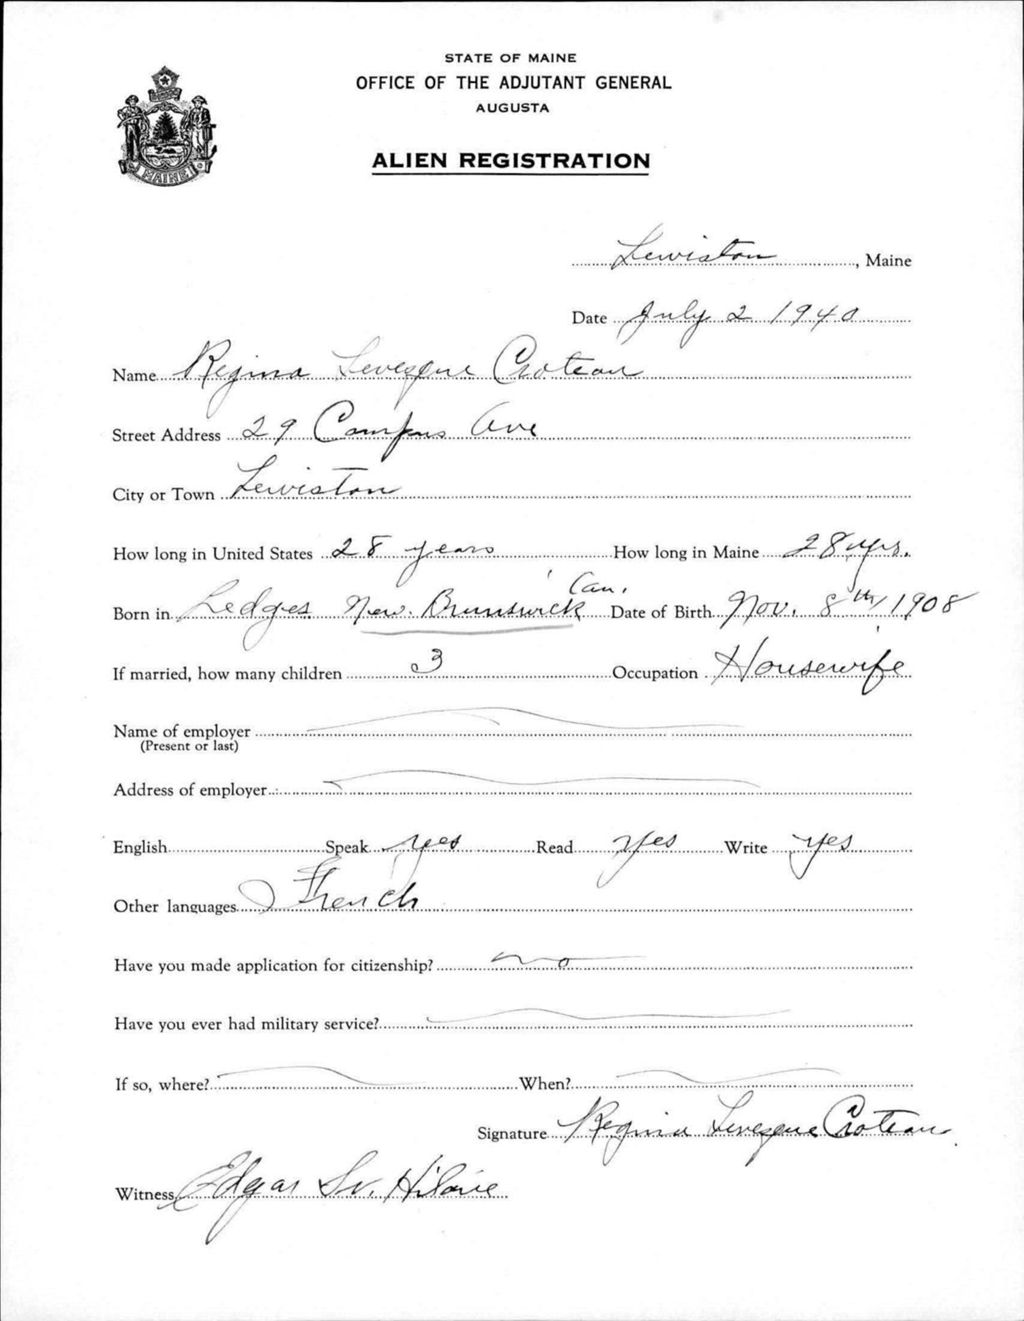 STATE OF MAINE
OFFICE OF THE ADJUTANT GENERAL
AUGUSTA
MAINE
ALIEN REGISTRATION
Lewiston, Maine
Date July 2 1940
Name Regina Levesque Croteau
Street Address 29 Campus Ave
City or Town Lewiston
How long in United States 28 years How long in Maine 28 yrs.
Born in Ledges, New Brunswick, Can. Date of Birth Nov. 8th, 1908
If married, how many children 3 Occupation Housewife
Name of employer
(Present or last)
Address of employer
English Speak yes Read yes Write yes
Other languages French
Have you made application for citizenship? no
Have you ever had military service?
If so, where? When?
Signature Regina Levesque Croteau
Witness Edgar St. Hilaire